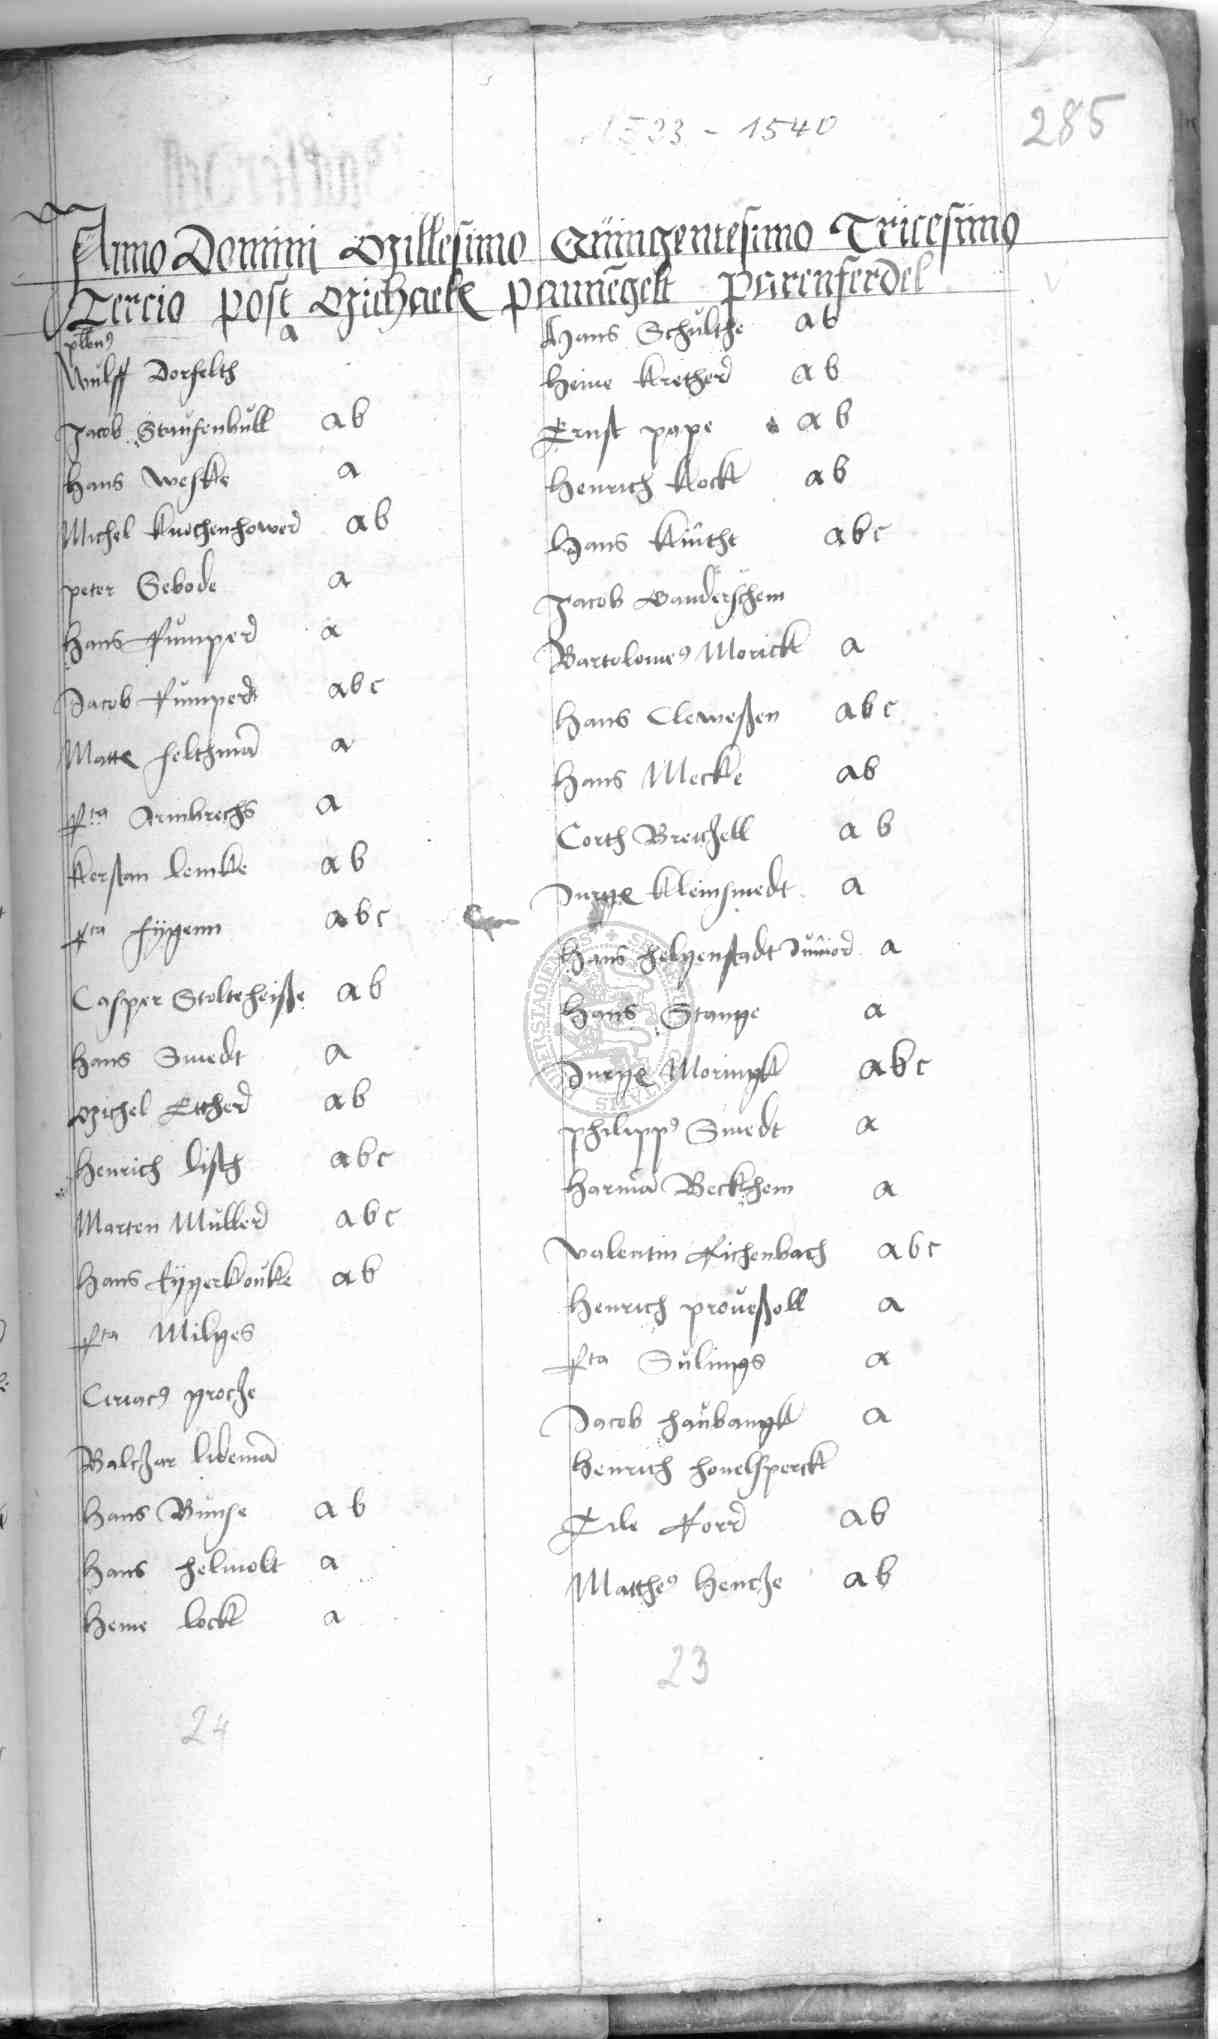 1533 - 1540
285
Anno Domini Millesimo Quingentesimo Tricesimo
Tercio post Michaelis panne͞gelt parenferdel
Wulff Dorfelth a
Jacob Staufenbull a b
Hans Weske a
Michel Knochenhower a b
peter Sebode a
Hans Rumper a
Jacob Rumper a b c
Matt felthma͞ a
Rta Armbrechs a
Kerstan lemke a b
Rta fygenn a b c
Casper Stolteheiße a b
Hans Smedt a
Michel Etther a b
Henrich listh a b c
Marten Muller a b c
Hans Rygerkouke a b
Rta Milges
Ciriacꝰ grocze
Balczar lidema͞
Hans Bunse a b
Hans helmolt a
Heine lock a
24
Hans Schulthe a b
Heine Krether a b
Ernst pape a b
Henrich Kock a b
Hans Knücht a b c
Jacob Ganderschem
Bartolomeꝰ Morick a
Hans Cleweßen a b c
Hans Mecke a b
Corth Breiczell a b
Jurge Kleinsmedt a
Hans helgenstadt Junior a
Hans Stange a
Jurge Moringk a b c
philippꝰ Smedt a
Harma͞ Beckhem a
Valentin Richenbach a b c
Henrich proueßoll a
Rta Sulings a
Jacob haubangk a
Henrich houelsperck
Tile Korr a b
Mattheꝰ Hencze a b
23